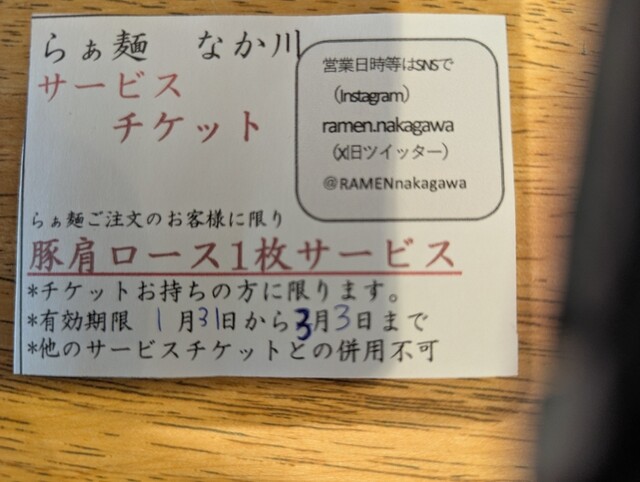 らぁ麺 なか川
サービス
チケット
営業日時等はSNSで
（Instagram）
ramen.nakagawa
（X旧ツイッター）
@RAMENnakagawa
らぁ麺ご注文のお客様に限り
豚肩ロース1枚サービス
*チケットお持ちの方に限ります。
*有効期限 1月31日から3月3日まで
*他のサービスチケットとの併用不可